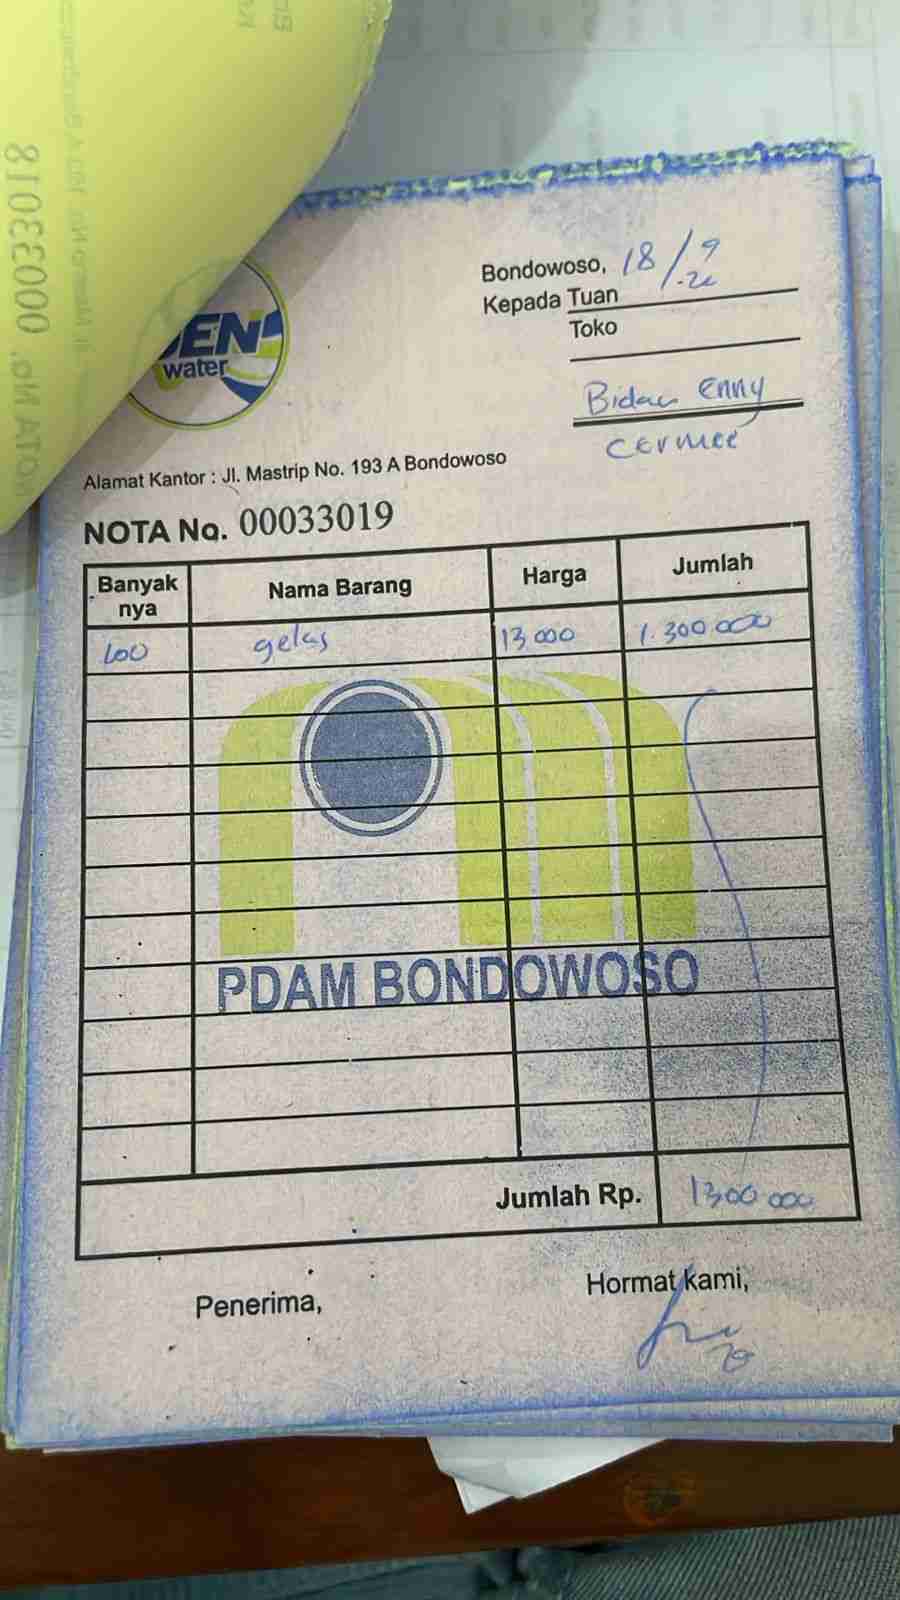 NOTA No. 00033018
EN
water
Bondowoso, 18/9
Kepada Tuan
Toko
Bidan Enny
Cermee
Alamat Kantor : Jl. Mastrip No. 193 A Bondowoso
NOTA No. 00033019
Banyak nya Nama Barang Harga Jumlah
100 gelas 13 000 1.300 000
PDAM BONDOWOSO
Jumlah Rp. 1300 000
Penerima, Hormat kami,